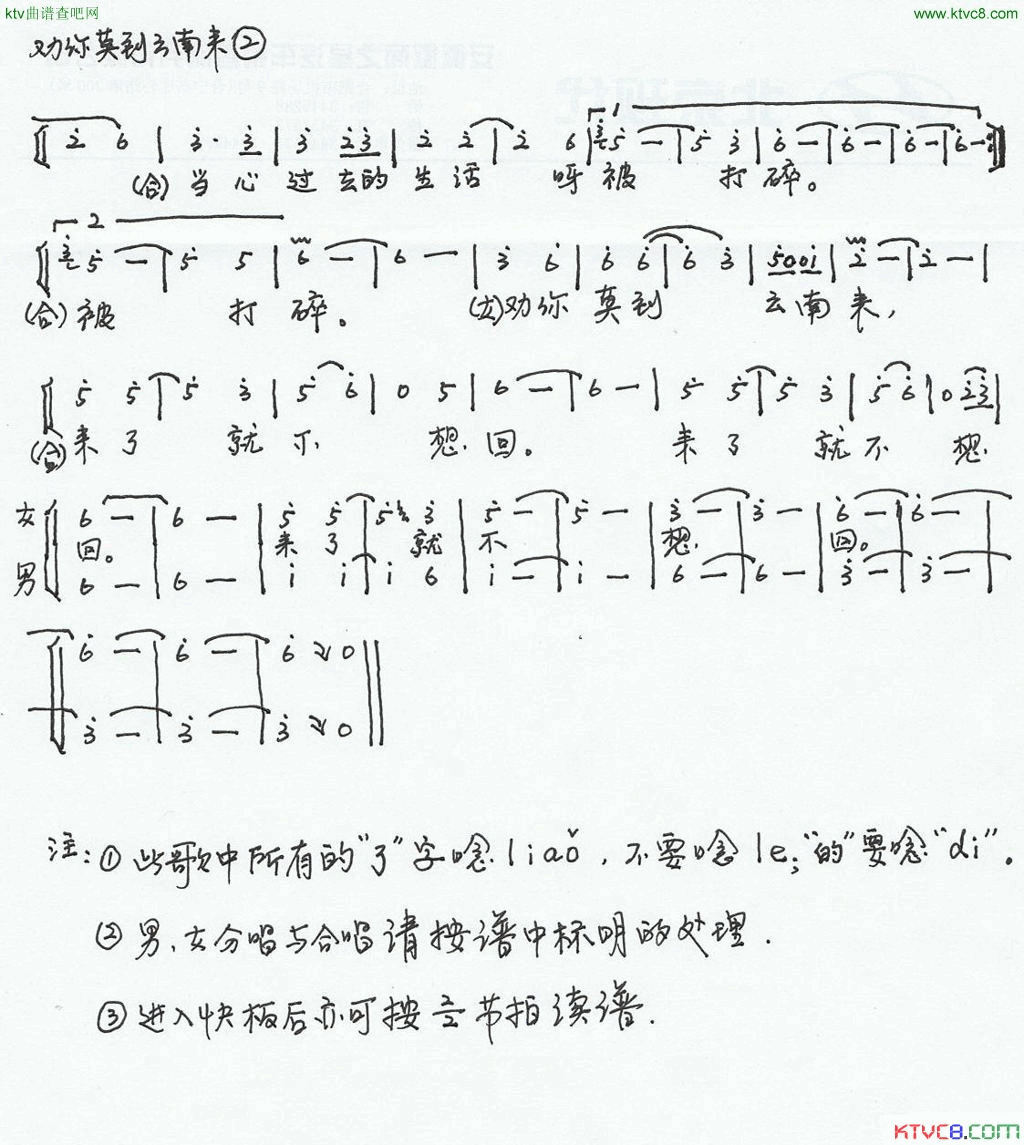 ktv曲谱查吧网
www.ktvc8.com
劝你莫到云南来②
1
2̇ 6̇ | 3̇· 3̇ | 3̇ 2̇3̇ | 2̇ 2̇ | 2̇ 6 | 5̇ — | 5̇ 3̇ | 6̇ — | 6̇ — | 6̇ — | 6̇ —
(合) 当 心 过 去 的 生 活 呀 被 打 碎。
2
5̇ — | 5̇ 5 | 6̇ — | 6̇ — | 3 6̇ | 6̇ 6̇ | 6̇ 3̇ | 5̇001̇ | 2̇ — | 2̇ — |
(合) 被 打 碎。 (女) 劝 你 莫 到 云 南 来,
5̇ 5̇ | 5̇ 3̇ | 5̇ 6̇ | 0 5 | 6 — | 6 — | 5̇ 5̇ | 5̇ 3̇ | 5̇ 6̇ | 0 2̇3̇ |
(合) 来 了 就 不 想 回。 来 了 就 不 想
女 6 — | 6 — | 5̇ 5̇ | 5̇ 3̇ | 5̇ — | 5̇ — | 3̇ — | 3̇ — | 6̇ — | 6̇ —
回。 来 了 就 不 想 回。
男 6 — | 6 — | 1̇ 1̇ | 1̇ 6 | 1̇ — | 1̇ — | 6 — | 6 — | 3̇ — | 3̇ —
6̇ — | 6̇ — | 6̇ 0 ‖
3̇ — | 3̇ — | 3̇ 0 ‖
注: ① 此歌中所有的"了"字唸 liaǒ, 不要唸 le;"的"要唸"di"。
② 男、女分唱与合唱请按谱中标明的处理.
③ 进入快板后亦可按 节拍读谱.
KTVC8.COM